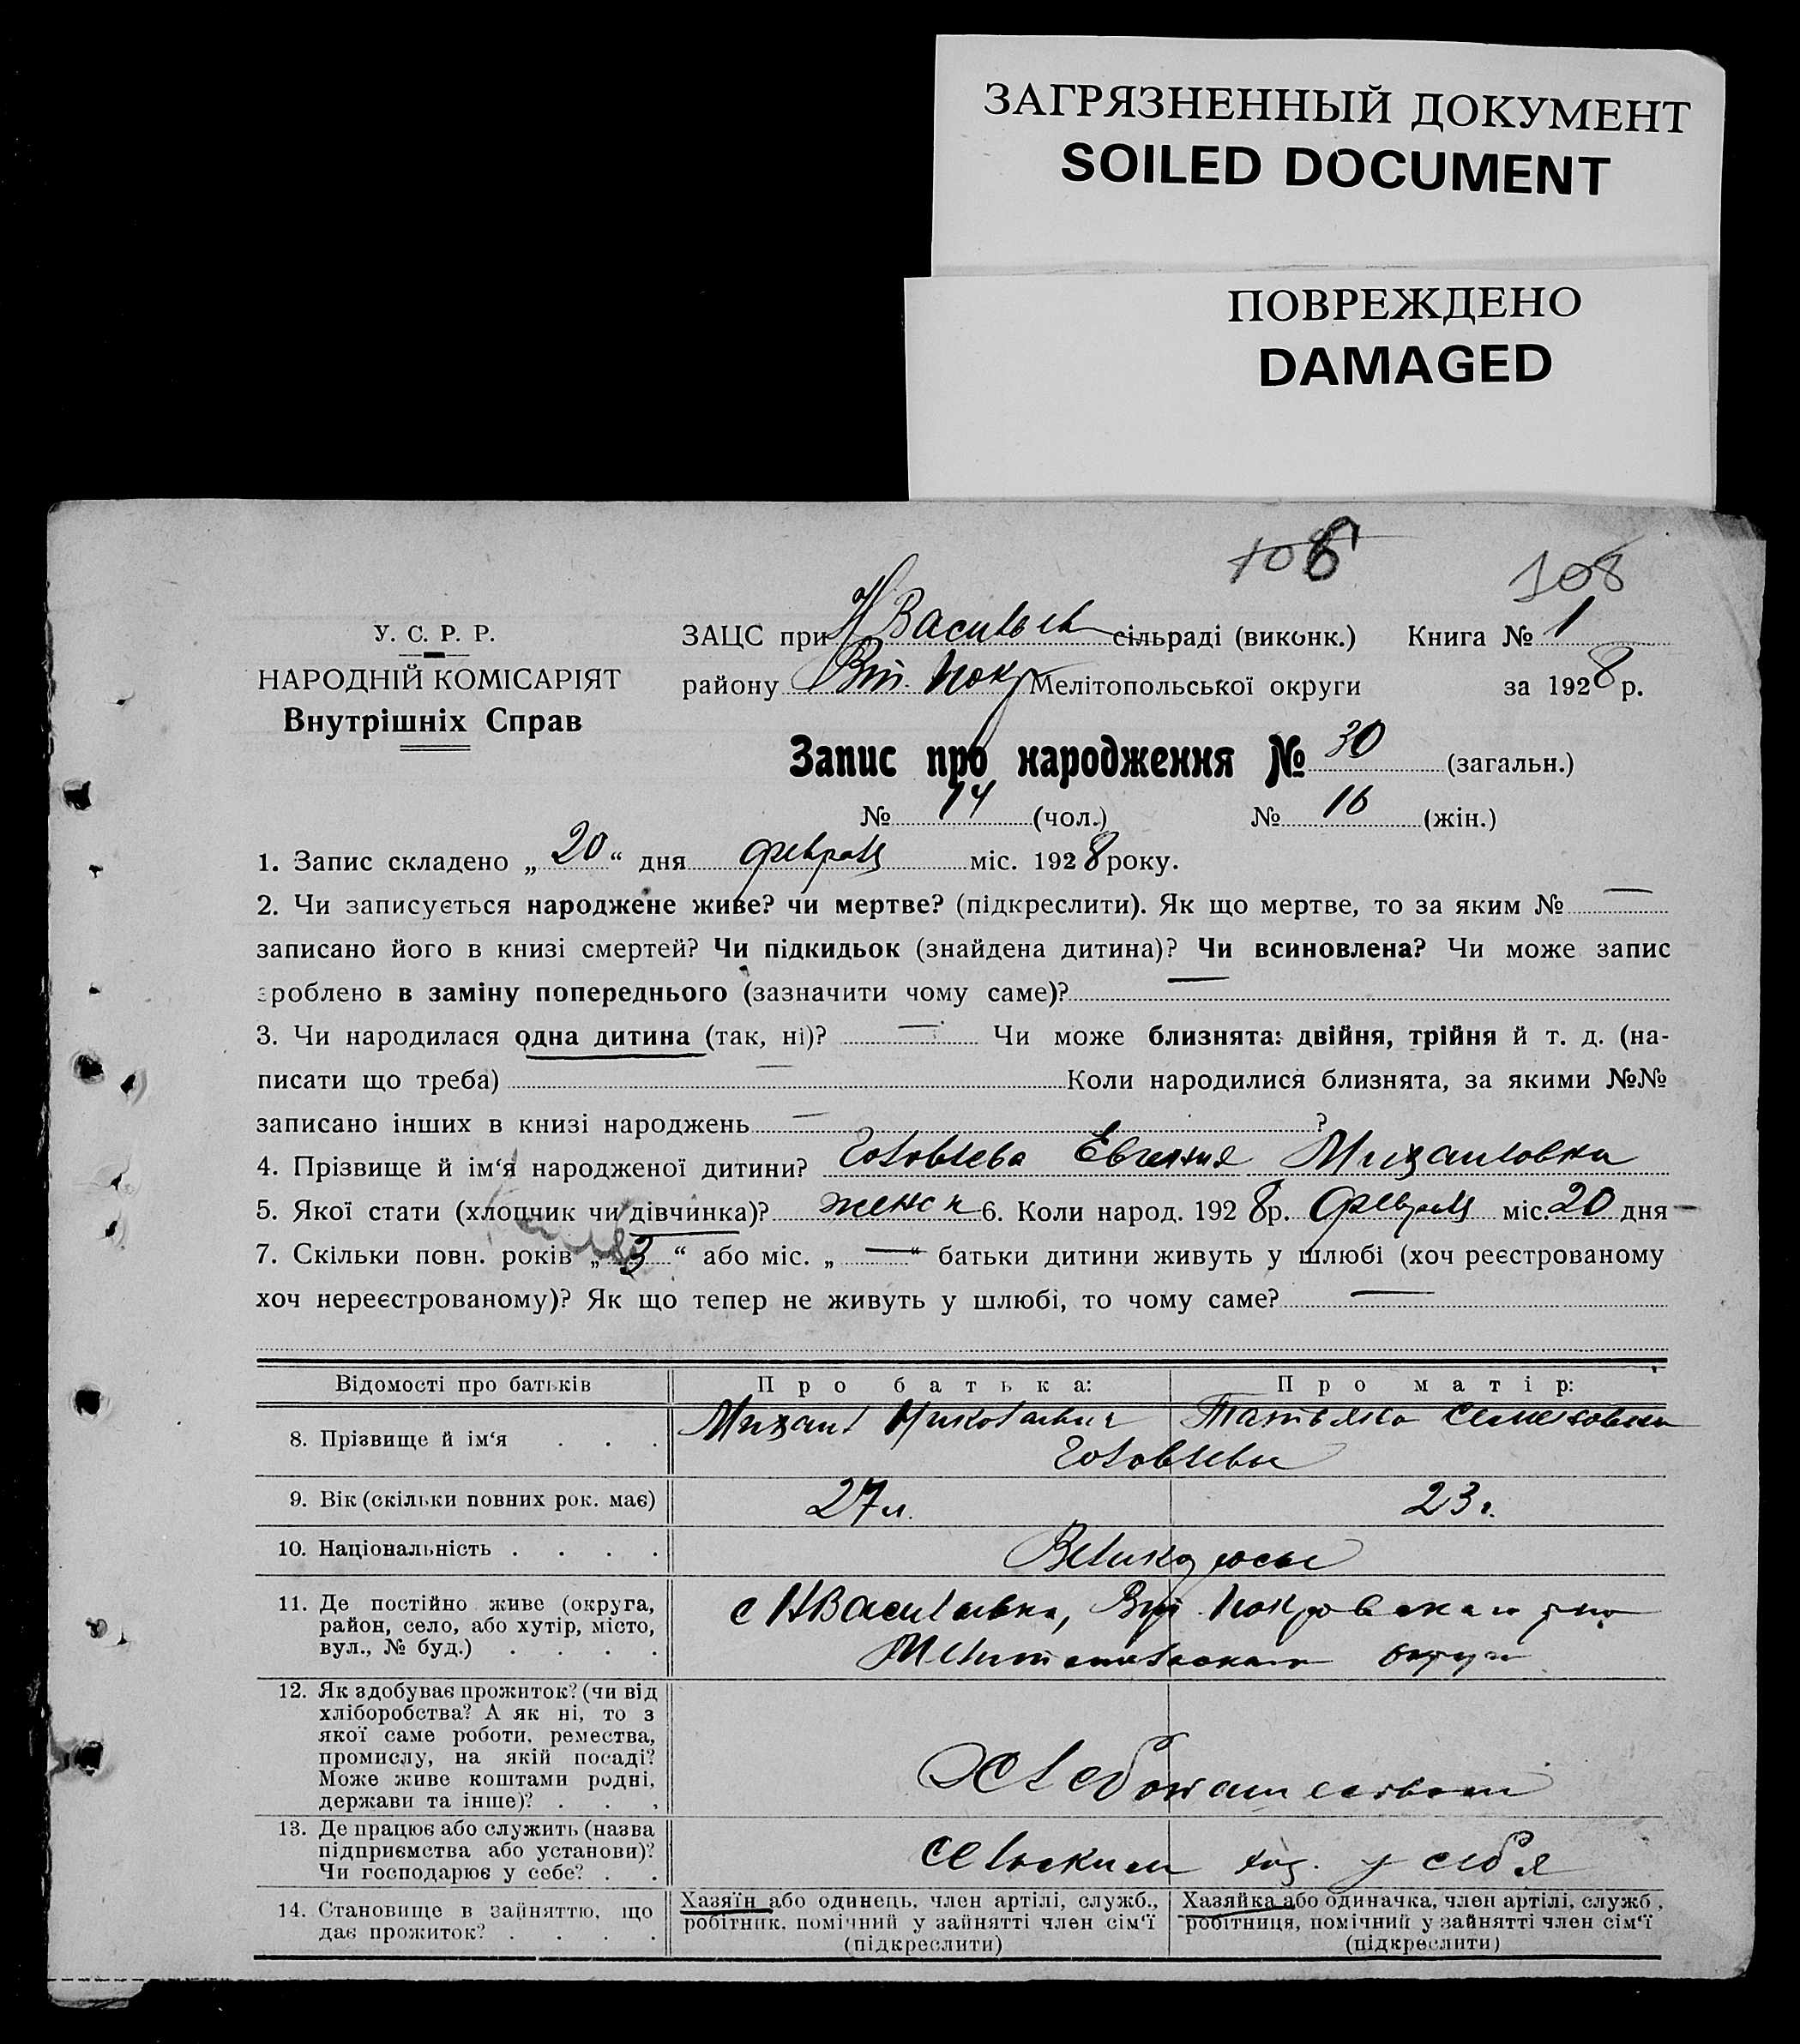 ЗАГРЯЗНЕННЫЙ ДОКУМЕНТ
SOILED DOCUMENT
ПОВРЕЖДЕНО
DAMAGED
108 108
У. С. Р. Р.
НАРОДНІЙ КОМІСАРІЯТ
Внутрішніх Справ
ЗАЦС при Н Васильев сільраді (виконк.) Книга № 1
району Вт. Покр Мелітопольської округи за 1928 р.
Запис про народження № 30 (загальн.)
№ 14 (чол.) № 16 (жін.)
1. Запис складено „ 20 “ дня февраля міс. 1928 року.
2. Чи записується народжене живе? чи мертве? (підкреслити). Як що мертве, то за яким № —
записано його в книзі смертей? Чи підкидьок (знайдена дитина)? Чи всиновлена? Чи може запис
зроблено в заміну попереднього (зазначити чому саме)? —
3. Чи народилася одна дитина (так, ні)? — Чи може близнята: двійня, трійня й т. д. (на-
писати що треба) — Коли народилися близнята, за якими №№
записано інших в книзі народжень — ?
4. Прізвище й ім‘я народженої дитини? Головлева Евгения Михаиловна
5. Якої стати (хлопчик чи дівчинка)? женск 6. Коли народ. 1928 р. февраля міс. 20 дня —
7. Скільки повн. років „ 3 “ або міс. „ — “ батьки дитини живуть у шлюбі (хоч реєстрованому
хоч нереєстрованому)? Як що тепер не живуть у шлюбі, то чому саме? —
Відомості про батьків Про батька: Про матір:
8. Прізвище й ім‘я . . . Михаил Николаевич Татьяна Семеновна
Головлевы
9. Вік (скільки повних рок. має) 27 л. 23 г.
10. Національність . . . . Великороссы
11. Де постійно живе (округа,
район, село, або хутір, місто,
вул., № буд.) . . . .
с НВасильевка, Вт. Покровского р-на
Мелитопольского округа
12. Як здобуває прожиток? (чи від
хліборобства? А як ні, то з
якої саме роботи, ремества,
промислу, на якій посаді?
Може живе коштами родні,
держави та інше)? . . .
Хлебопашеством
13. Де працює або служить (назва
підприємства або установи)?
Чи господарює у себе? . .
сельским хоз. у себя
14. Становище в зайняттю, що
дає прожиток? . . . .
Хазяїн або одинець, член артілі, служб.,
робітник, помічний у зайнятті член сім‘ї
(підкреслити)
Хазяйка або одиначка, член артілі, служб.,
робітниця, помічний у зайнятті член сім‘ї
(підкреслити)